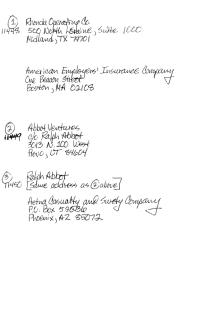 ①
11498 Rhonda Operating Co.
500 North Loraine, Suite 1000
Midland, TX 79701
American Employers' Insurance Company
One Beacon Street
Boston, MA 02108
②
Abbot Ventures
c/o Ralph Abbot
3013 N. 100 West
Provo, UT 84604
③ Ralph Abbot
11450 [same address as ② above]
Aetna Casualty and Surety Company
P.O. Box
Phoenix, AZ 85072